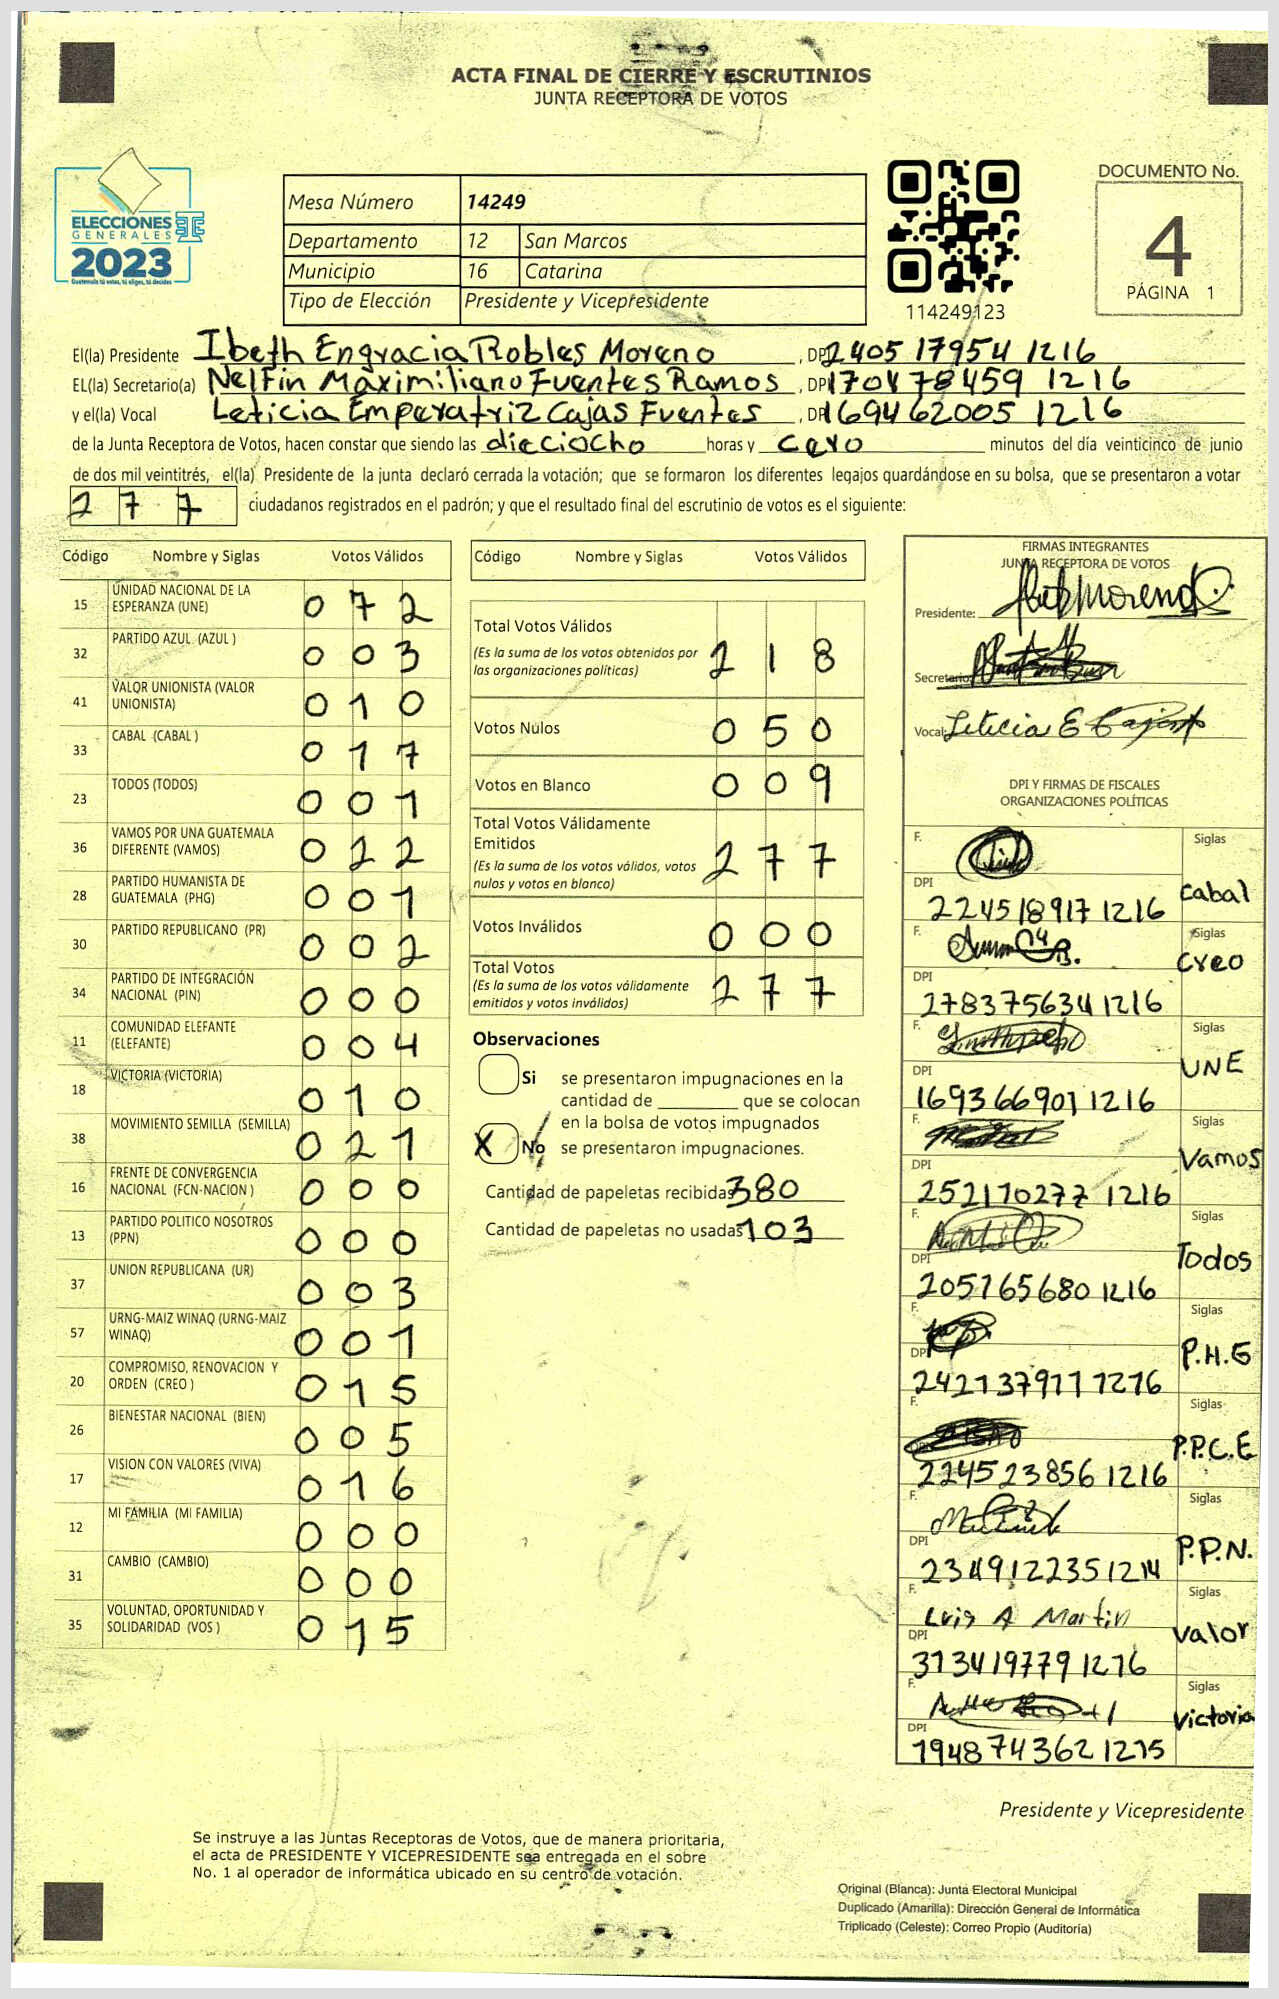 ACTA FINAL DE CIERRE Y ESCRUTINIOS
JUNTA RECEPTORA DE VOTOS
ELECCIONES
GENERALES
2023
Guatemala tú votas, tú eliges, tú decides
Mesa Número 14249
Departamento 12 San Marcos
Municipio 16 Catarina
Tipo de Elección Presidente y Vicepresidente
114249123
DOCUMENTO No.
4
PÁGINA 1
El(la) Presidente Ibeth Engracia Robles Moreno, DPI 2405 17954 1216
EL(la) Secretario(a) Nelfin Maximiliano Fuentes Ramos, DPI 170478459 1216
y el(la) Vocal Leticia Emperatriz Cajas Fuentes, DPI 169462005 1216
de la Junta Receptora de Votos, hacen constar que siendo las dieciocho horas y cero minutos del día veinticinco de junio
de dos mil veintitrés, el(la) Presidente de la junta declaró cerrada la votación; que se formaron los diferentes legajos guardándose en su bolsa, que se presentaron a votar
277 ciudadanos registrados en el padrón; y que el resultado final del escrutinio de votos es el siguiente:
Código Nombre y Siglas Votos Válidos
15 UNIDAD NACIONAL DE LA ESPERANZA (UNE) 072
32 PARTIDO AZUL (AZUL ) 003
41 VALOR UNIONISTA (VALOR UNIONISTA) 010
33 CABAL (CABAL ) 017
23 TODOS (TODOS) 001
36 VAMOS POR UNA GUATEMALA DIFERENTE (VAMOS) 022
28 PARTIDO HUMANISTA DE GUATEMALA (PHG) 001
30 PARTIDO REPUBLICANO (PR) 002
34 PARTIDO DE INTEGRACIÓN NACIONAL (PIN) 000
11 COMUNIDAD ELEFANTE (ELEFANTE) 004
18 VICTORIA (VICTORIA) 010
38 MOVIMIENTO SEMILLA (SEMILLA) 021
16 FRENTE DE CONVERGENCIA NACIONAL (FCN-NACION ) 000
13 PARTIDO POLITICO NOSOTROS (PPN) 000
37 UNION REPUBLICANA (UR) 003
57 URNG-MAIZ WINAQ (URNG-MAIZ WINAQ) 001
20 COMPROMISO, RENOVACION Y ORDEN (CREO ) 015
26 BIENESTAR NACIONAL (BIEN) 005
17 VISION CON VALORES (VIVA) 016
12 MI FAMILIA (MI FAMILIA) 000
31 CAMBIO (CAMBIO) 000
35 VOLUNTAD, OPORTUNIDAD Y SOLIDARIDAD (VOS ) 015
Código Nombre y Siglas Votos Válidos
Total Votos Válidos 218
(Es la suma de los votos obtenidos por
las organizaciones políticas)
Votos Nulos 050
Votos en Blanco 009
Total Votos Válidamente
Emitidos 277
(Es la suma de los votos válidos, votos
nulos y votos en blanco)
Votos Inválidos 000
Total Votos 277
(Es la suma de los votos válidamente
emitidos y votos inválidos)
Observaciones
Si se presentaron impugnaciones en la
cantidad de ________ que se colocan
en la bolsa de votos impugnados
X No se presentaron impugnaciones.
Cantidad de papeletas recibidas 380
Cantidad de papeletas no usadas 103
FIRMAS INTEGRANTES
JUNTA RECEPTORA DE VOTOS
Presidente:
Secretario:
Vocal: Leticia E Cajas
DPI Y FIRMAS DE FISCALES
ORGANIZACIONES POLÍTICAS
F. Siglas
DPI cabal
224518917 1216
F. Siglas
creo
DPI
278375634 1216
F. Siglas
DPI UNE
169366901 1216
F. Siglas
DPI Vamos
252170277 1216
F. Siglas
DPI Todos
205765680 1216
F. Siglas
DPI P.H.G
242137911 1216
F. Siglas
DPI P.P.C.E
224523856 1216
F. Siglas
DPI P.P.N.
234912235 1214
F. Siglas
Luis A Martin
DPI Valor
373419779 1216
F. Siglas
DPI Victoria
794874362 1215
Presidente y Vicepresidente
Se instruye a las Juntas Receptoras de Votos, que de manera prioritaria,
el acta de PRESIDENTE Y VICEPRESIDENTE sea entregada en el sobre
No. 1 al operador de informática ubicado en su centro de votación.
Original (Blanca): Junta Electoral Municipal
Duplicado (Amarilla): Dirección General de Informática
Triplicado (Celeste): Correo Propio (Auditoría)